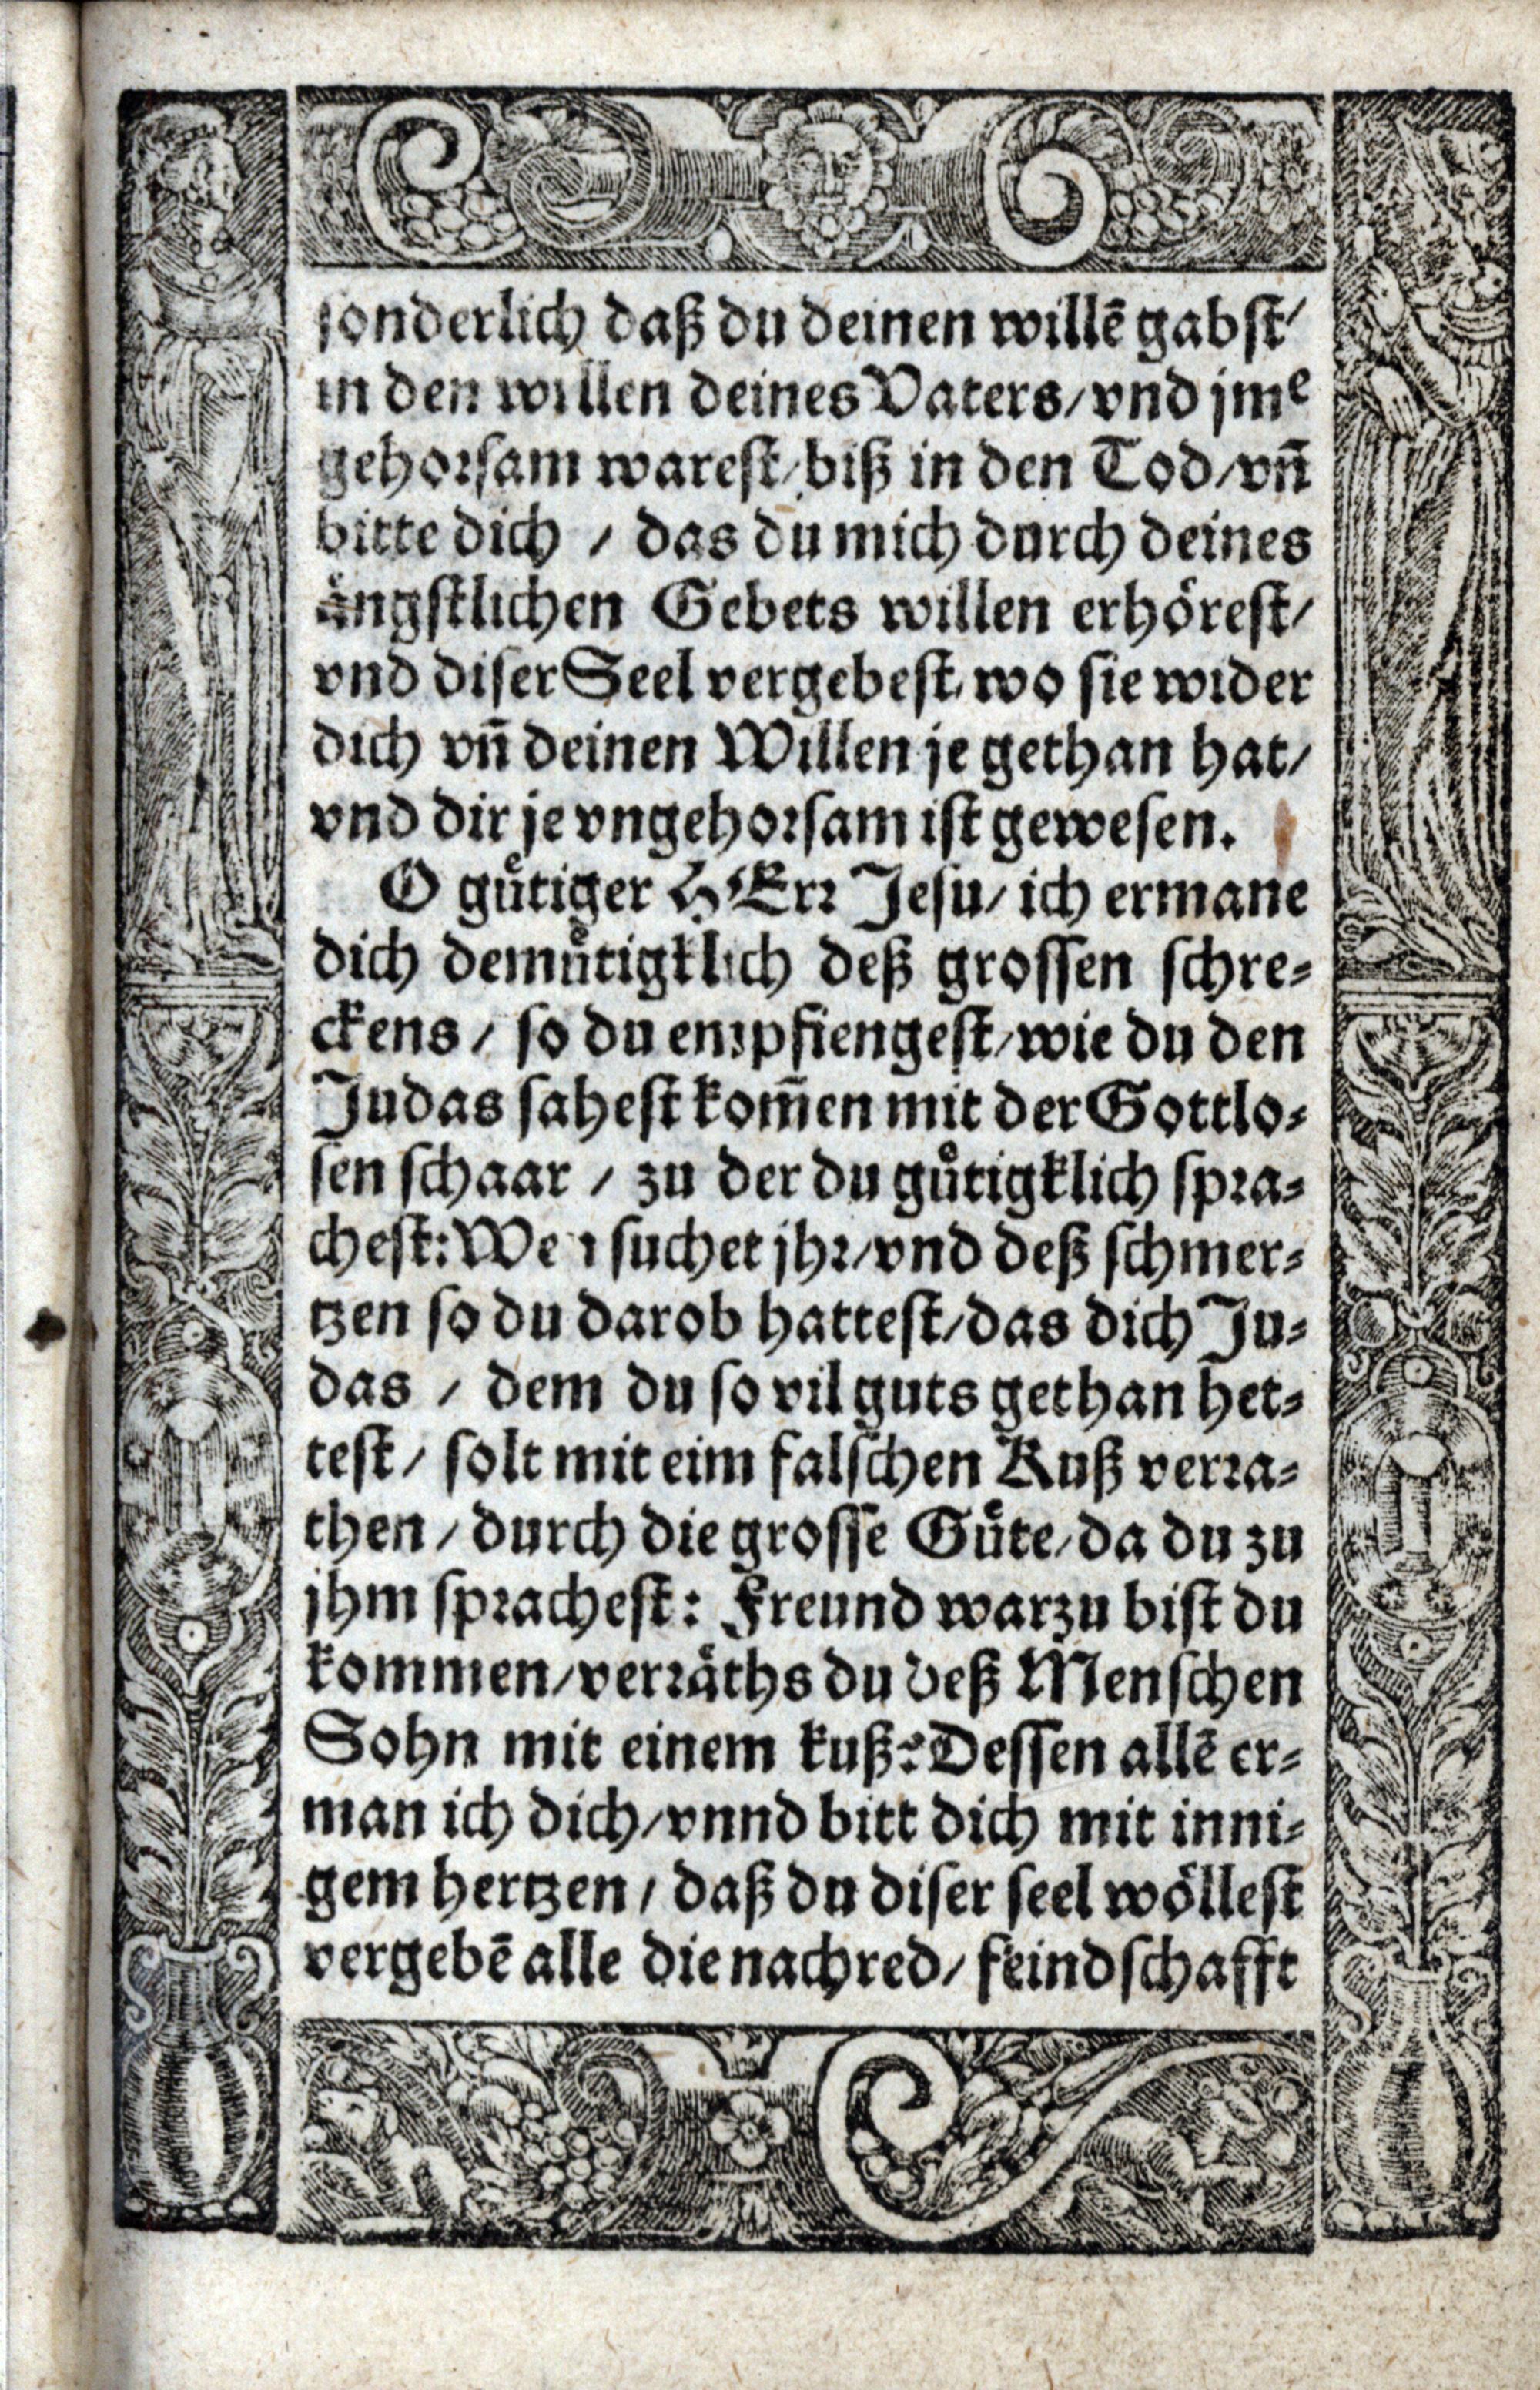 sonderlich daß du deinen willē gabst/
in den willen deines Vaters/ vnd jmͤ
gehorsam warest/ biß in den Tod/ vn̄
bitte dich / das du mich durch deines
aͤngstlichen Gebets willen erhoͤrest/
vnd diser Seel vergebest/ wo sie wider
dich vn̄ deinen Willen je gethan hat/
vnd dir je vngehorsam ist gewesen.
O guͤtiger HErr Jesu/ ich ermane
dich demuͤtigklich deß grossen schre⸗
ckens / so du empfiengest/ wie du den
Judas sahest kom̄en mit der Gottlo⸗
sen schaar / zu der du guͤtigklich spra⸗
chest: Wen suchet jhr/ vnd deß schmer⸗
tzen so du darob hattest/ das dich Ju⸗
das / dem du so vil guts gethan het⸗
test / solt mit eim falschen Kuß verra⸗
then / durch die grosse Guͤte/ da du zu
jhm sprachest: Freund warzu bist du
kommen/ verraͤths du deß Menschen
Sohn mit einem kuß? Dessen allē er⸗
man ich dich/ vnnd bitt dich mit inni⸗
gem hertzen / daß du diser seel woͤllest
vergebē alle die nachred/ feindschafft